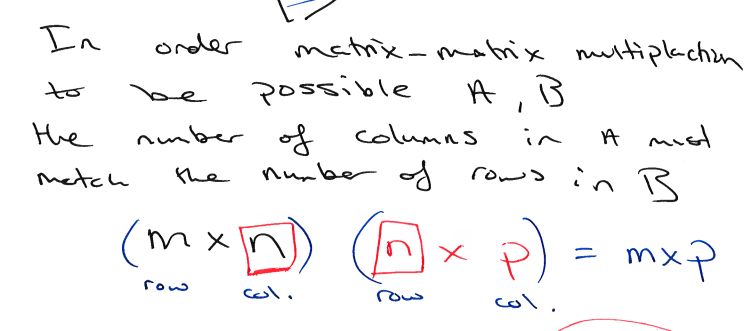 In order matrix-matrix multiplaction
to be possible A, B
the number of columns in A must
match the number of rows in B
(m × n) (n × p) = m×p
row col. row col.